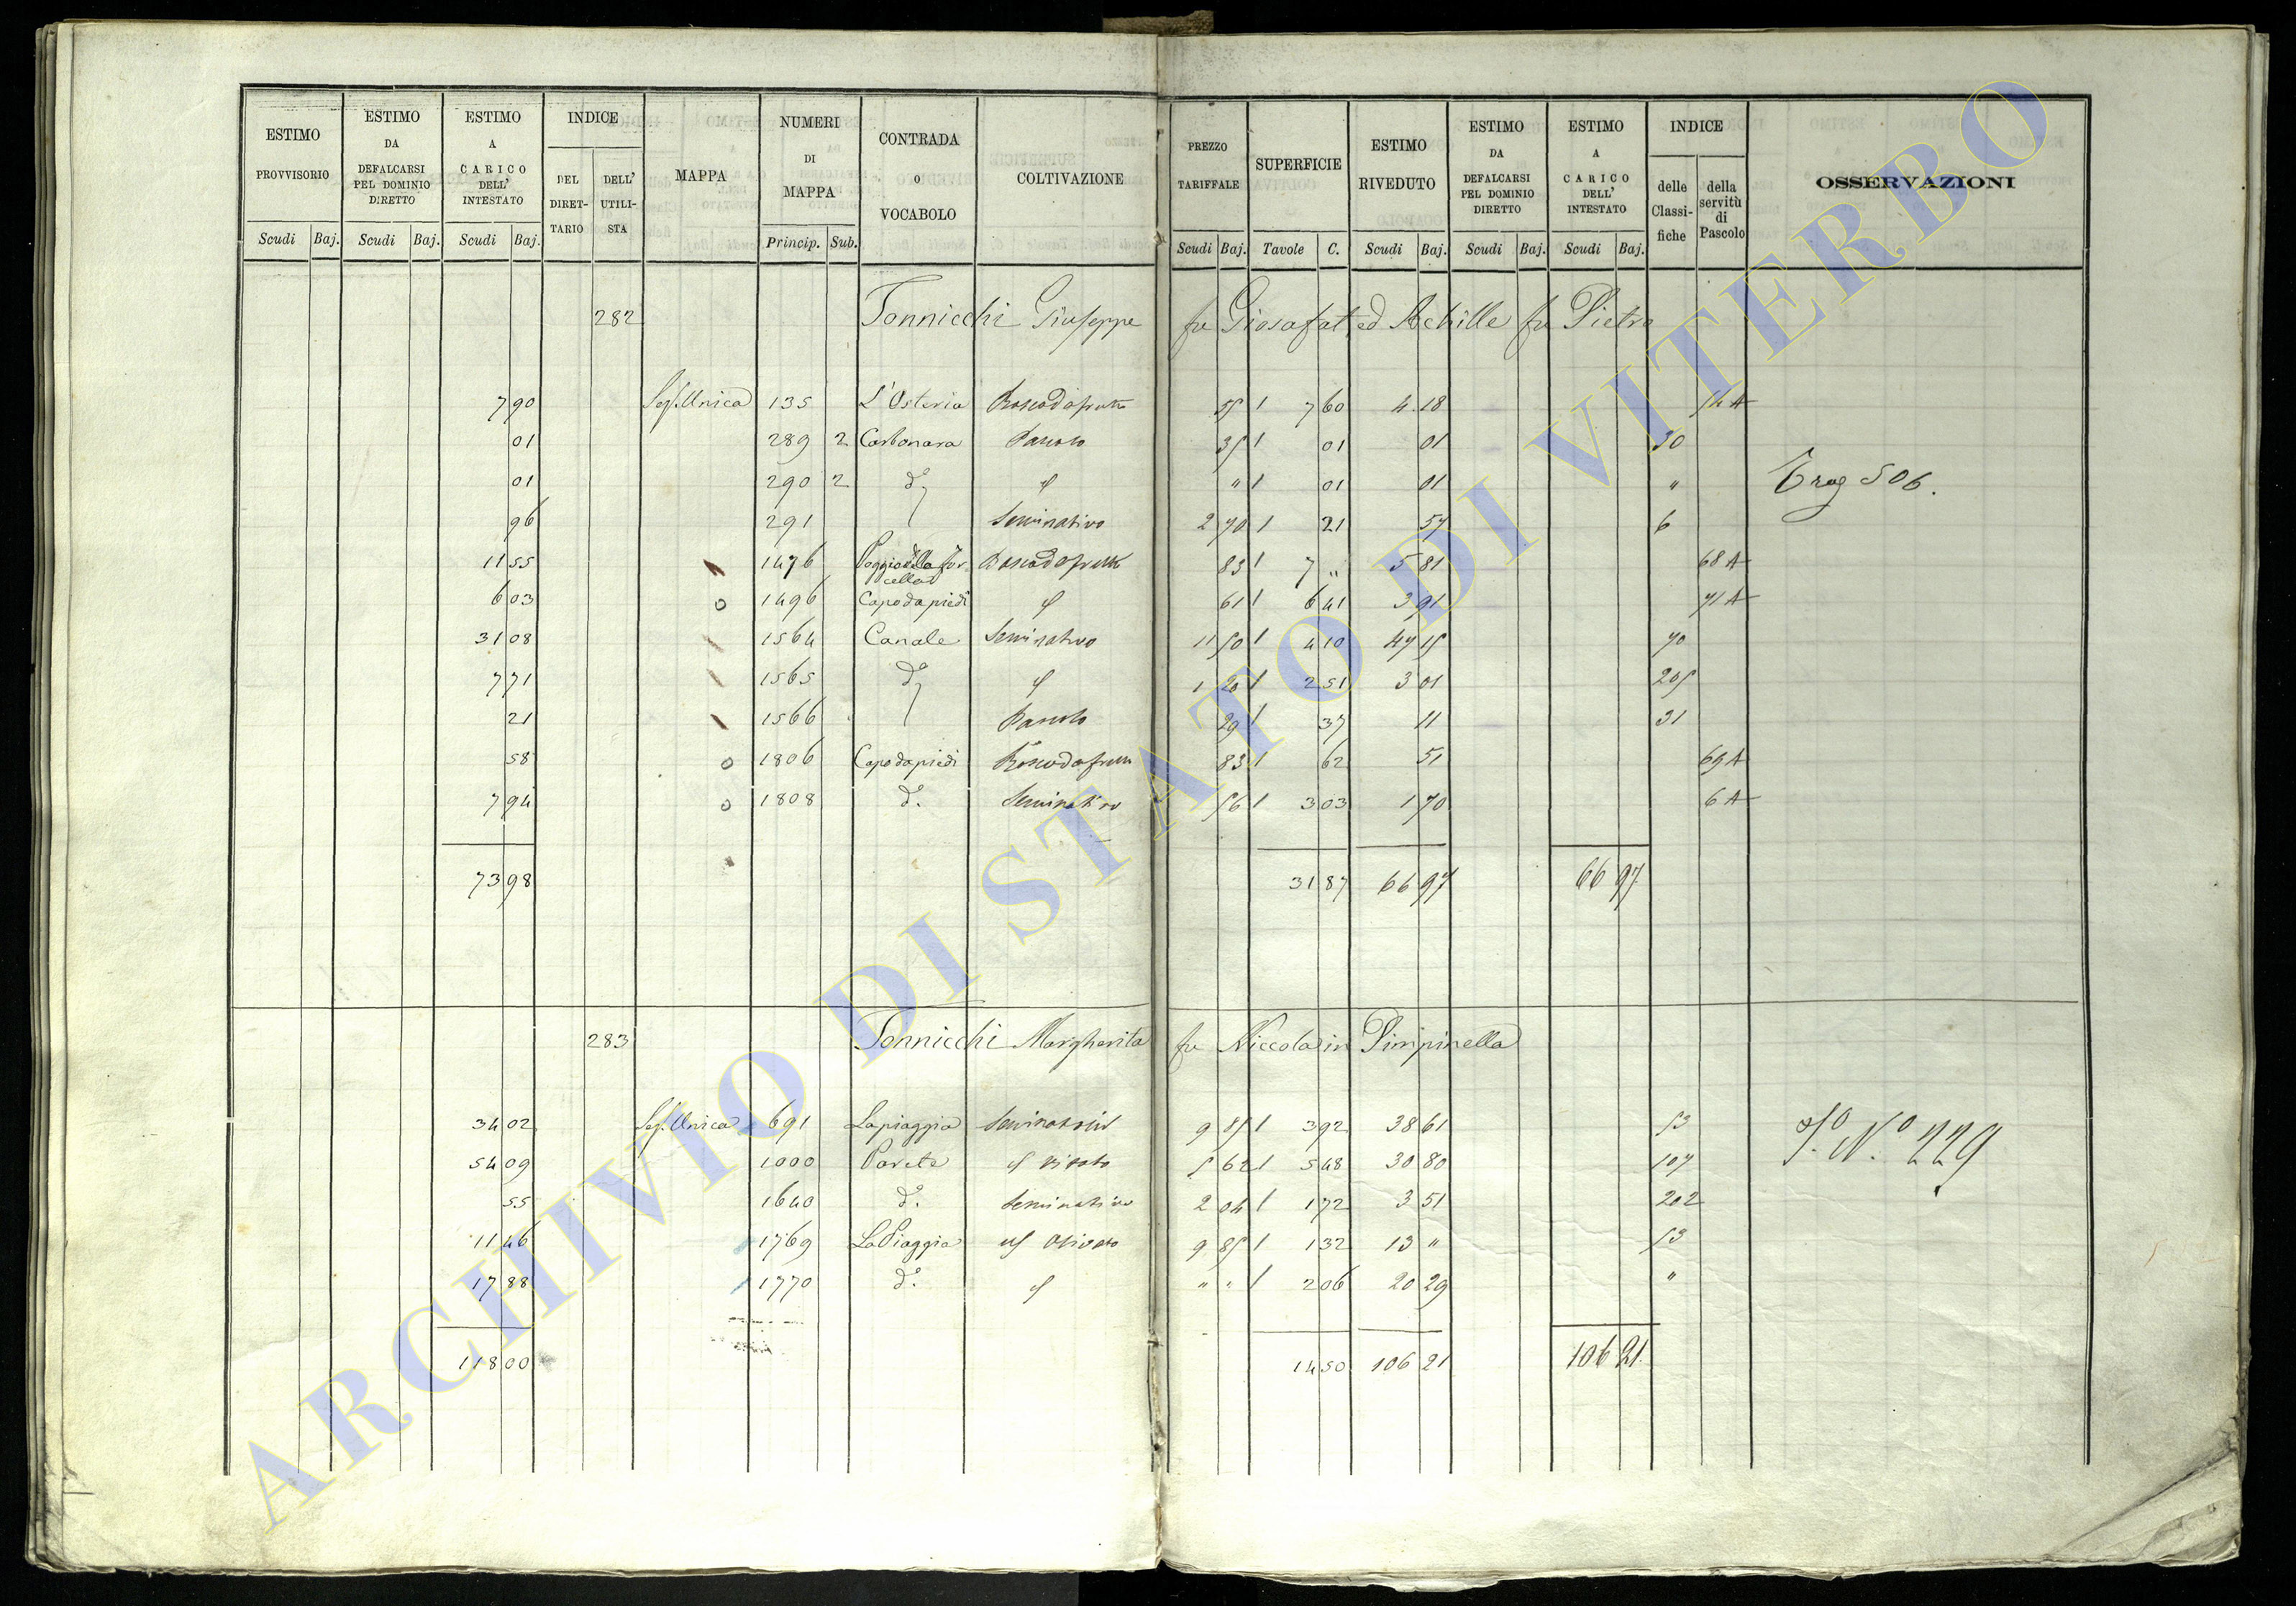 ESTIMO PROVVISORIO
ESTIMO DA DEFALCARSI PEL DOMINIO DIRETTO
ESTIMO A CARICO DELL' INTESTATO
INDICE
DEL DIRETTARIO
DELL' UTILISTA
MAPPA
NUMERI DI MAPPA
CONTRADA O VOCABOLO
COLTIVAZIONE
PREZZO TARIFFALE
SUPERFICIE
ESTIMO RIVEDUTO
ESTIMO DA DEFALCARSI PEL DOMINIO DIRETTO
ESTIMO A CARICO DELL' INTESTATO
INDICE
delle Classifiche
della servitù di Pascolo
OSSERVAZIONI
Scudi Baj. Scudi Baj. Scudi Baj. Princip. Sub. Scudi Baj. Tavole C. Scudi Baj. Scudi Baj. Scudi Baj.
282 Tonnicchi Giuseppe fu Giosafat, ed Achille fu Pietro
7 90 Sez. Unica 135 L'Osteria 55 7 60 4 18 14 A
01 289 2 Carbonara Pascolo 35 01 01 30
01 290 2 d° " 01 01 "
Trag 506.
96 291 Seminativo 2 70 21 57 6
11 55 1476 83 7 " 5 81 68 A
6 03 1496 Capodapiedi 61 6 41 3 91 71 A
31 08 1564 Canale Seminativo 11 50 4 10 47 15 70
7 71 1565 d° 1 20 2 51 3 01 205
21 1566 Pascolo 29 37 11 31
58 1806 Capodapiedi 83 62 51 69 A
7 94 1808 d°. Seminativo 56 3 03 1 70 6 A
73 98 31 87 66 97 66 97
283 Tonnicchi Margherita fu Niccola in Pimpinella
34 02 Sez. Unica 691 Lapiaggia 9 85 3 92 38 61 53
N° 229
54 09 1000 Parete 5 62 5 48 30 80 107
55 1640 d°. Seminativo 2 04 1 72 3 51 202
11 46 1769 La Piaggia olivato 9 85 1 32 13 " 53
17 88 1770 d°. " " 2 06 20 29 "
118 00 14 50 106 21 106 21
ARCHIVIO DI STATO DI VITERBO